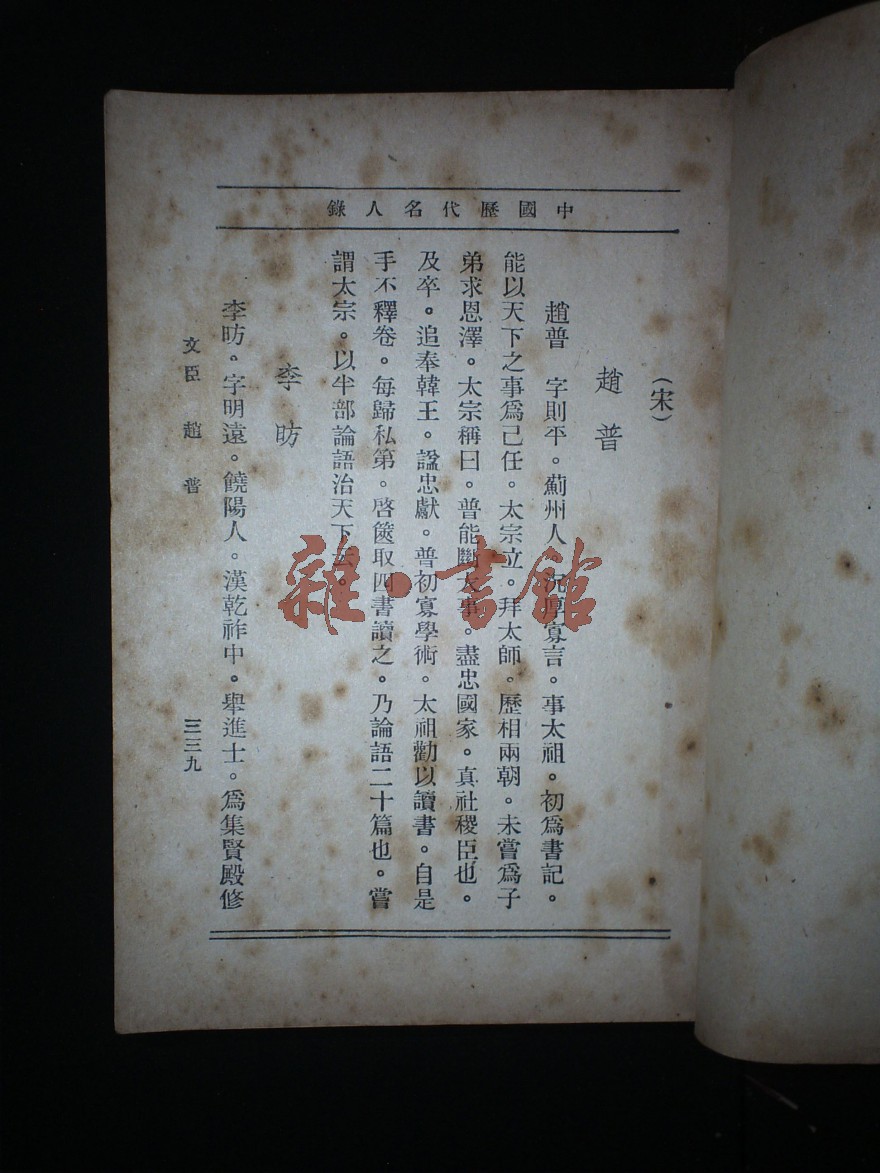 中國歷代名人錄
（宋）
趙普
趙普　字則平。薊州人。沉厚寡言。事太祖。初爲書記。
能以天下之事爲己任。太宗立。拜太師。歷相兩朝。未嘗爲子
弟求恩澤。太宗稱曰。普能斷大事。盡忠國家。真社稷臣也。
及卒。追奉韓王。諡忠獻。普初寡學術。太祖勸以讀書。自是
手不釋卷。每歸私第。啓篋取四書讀之。乃論語二十篇也。嘗
謂太宗。以半部論語治天下云。
李昉
李昉。字明遠。饒陽人。漢乾祚中。舉進士。爲集賢殿修
文臣　趙普
三三九
雜·書館